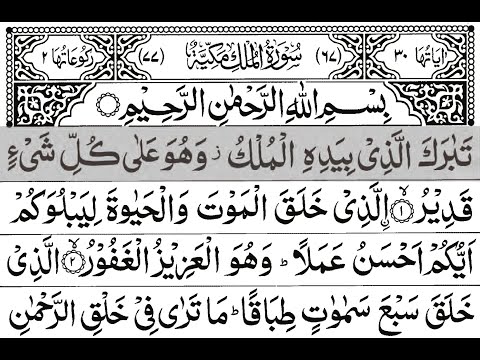 اٰيَاتُهَا ٣٠ (٦٧) سُوْرَةُ الْمُلْكِ مَكِّيَّةٌ (٧٧) رُكُوْعَاتُهَا ٢
بِسْمِ اللّٰهِ الرَّحْمٰنِ الرَّحِيْمِ
تَبٰرَكَ الَّذِىْ بِيَدِهِ الْمُلْكُ ز وَهُوَ عَلٰى كُلِّ شَىْءٍ
قَدِيْرُ ۙ﴿١﴾ اِۨلَّذِىْ خَلَقَ الْمَوْتَ وَالْحَيٰوةَ لِيَبْلُوَكُمْ
اَيُّكُمْ اَحْسَنُ عَمَلًا ؕ وَهُوَ الْعَزِيْزُ الْغَفُوْرُ ۙ﴿٢﴾ الَّذِىْ
خَلَقَ سَبْعَ سَمٰوٰتٍ طِبَاقًا ؕ مَا تَرٰى فِىْ خَلْقِ الرَّحْمٰنِ